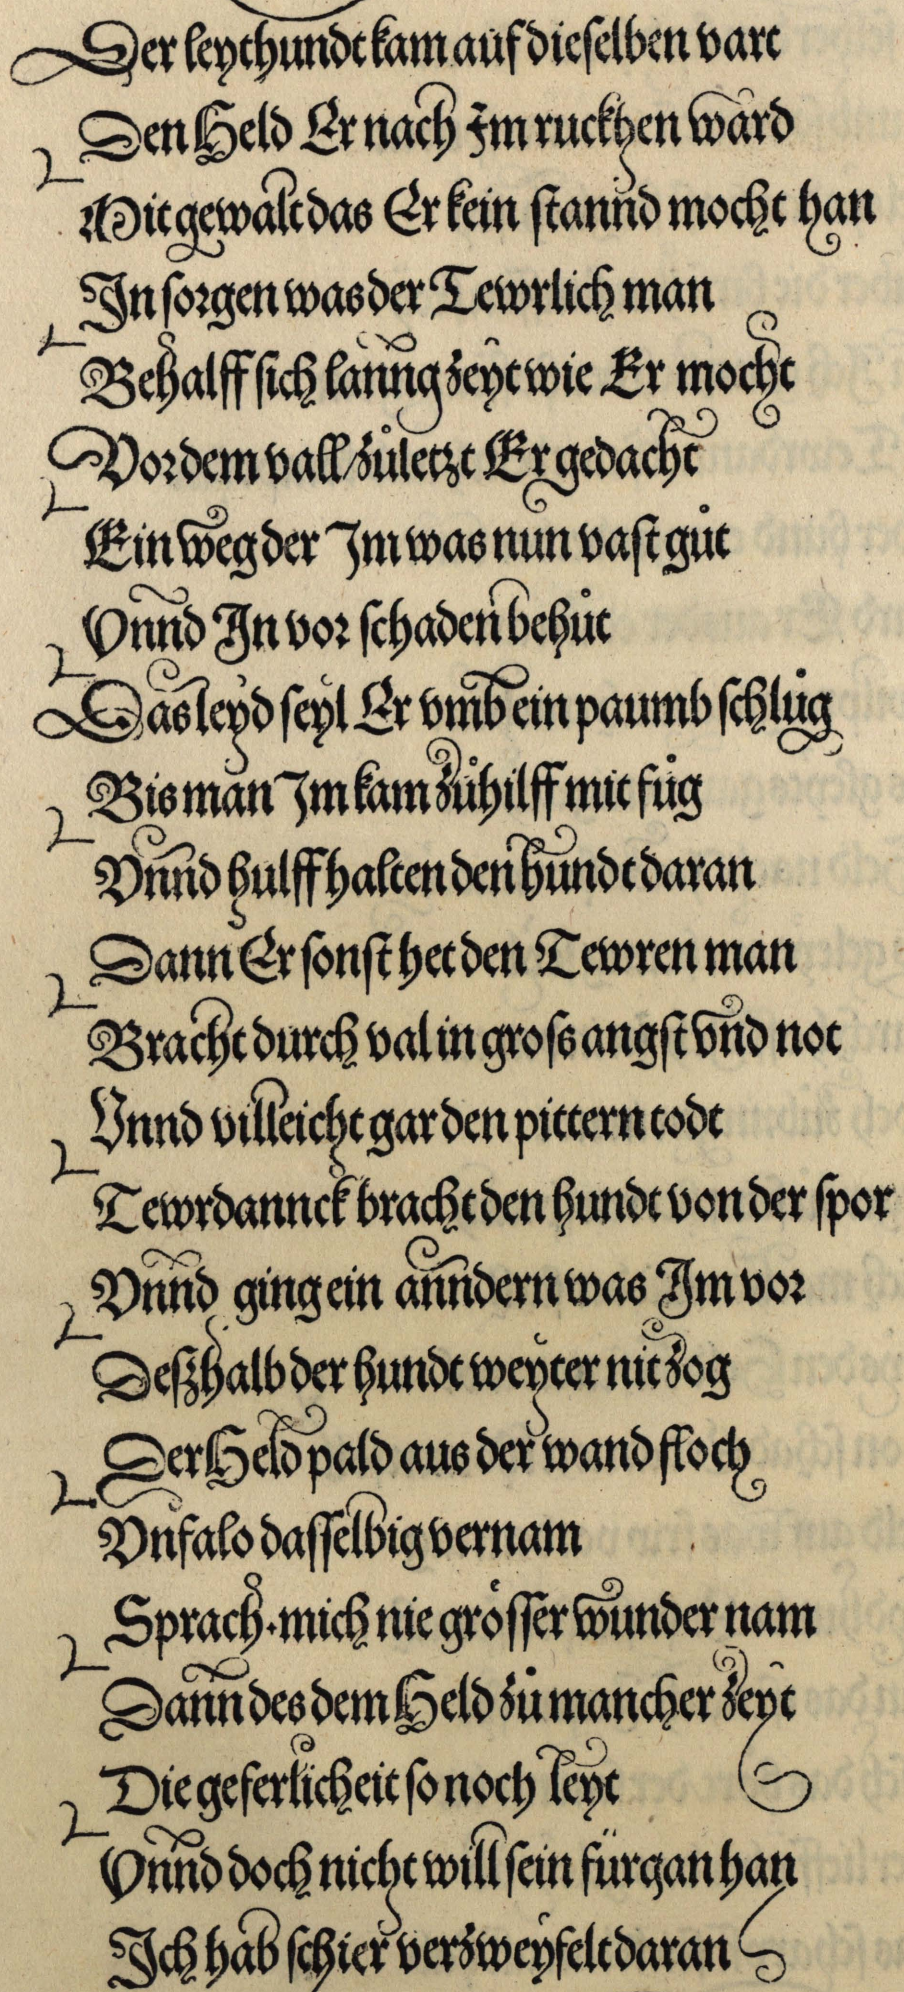 Der leythundt kam auf dieselben vart
Den Held Er nach Im ruckhen ward
Mit gewalt das Er kein stannd mocht han
In sorgen was der Tewrlich man
Behalff sich lanng zeyt wie Er mocht
Vor dem vall/zůletzt Er gedacht
Ein weg der Im was nun vast gůt
Vnnd In vor schaden behůt
Das leyd seyl Er vmb ein paumb schlůg
Bis man Im kam zůhilff mit fůg
Vnnd hulff halten den hundt daran
Dann Er sonst het den Tewren man
Bracht durch val in gross angst vnd not
Vnnd villeicht gar den pittern todt
Tewrdannck bracht den hundt von der spor
Vnnd ging ein anndern was Im vor
Deßhalb der hundt weyter nit zog
Der Held pald aus der wand floch
Vnfalo dasselbig vernam
Sprach·mich nie grösser wunder nam
Dann des dem Held zů mancher zeyt
Die geferlicheit so noch leyt
Vnnd doch nicht will sein fürgan han
Ich hab schier verzweyfelt daran